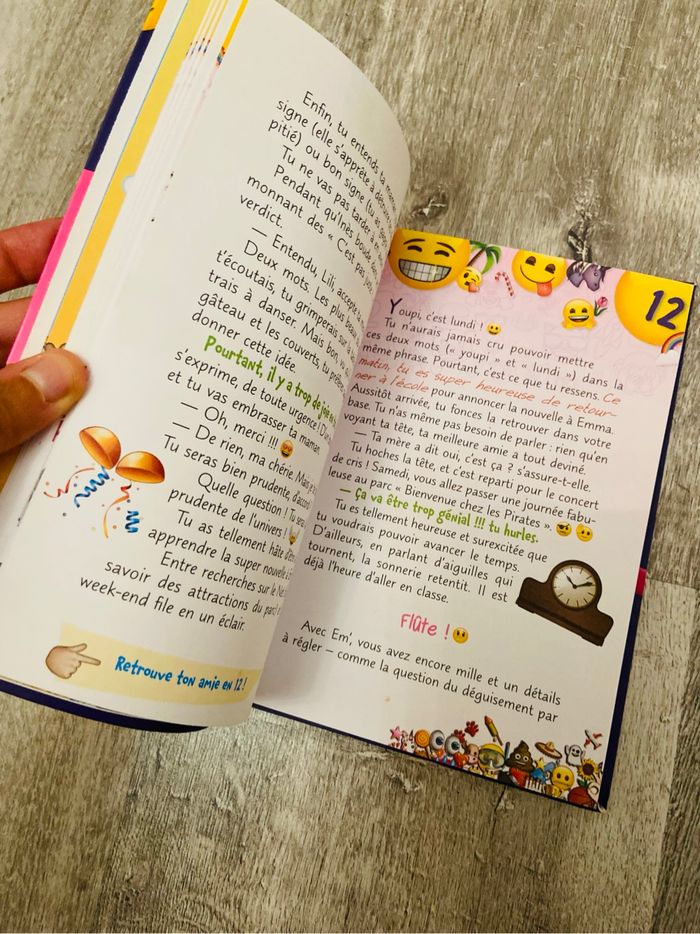 Enfin, tu entends ta
signe (elle s'apprête à
pitié) ou bon signe (tu
Tu ne vas pas tarder à
Pendant qu'Inès boude
monnant des « C'est pas
verdict.
— Entendu, Lili, accepte
Deux mots. Les plus
t'écoutais, tu grimperais sur
trais à danser. Mais bon
gâteau et les couverts, tu
donner cette idée.
Pourtant, il y a trop de
s'exprime, de toute urgence !
et tu vas embrasser ta maman.
— Oh, merci !!! 😍
— De rien, ma chérie. Mais
Tu seras bien prudente, d'accord
Quelle question ! Tu
prudente de l'univers !
Tu as tellement hâte
apprendre la super nouvelle à
Entre recherches sur le
savoir des attractions du parc
week-end file en un éclair.
Retrouve ton amie en 12 !
12
Youpi, c'est lundi ! 😀
Tu n'aurais jamais cru pouvoir mettre
ces deux mots (« youpi » et « lundi ») dans la
même phrase. Pourtant, c'est ce que tu ressens. Ce
matin, tu es super heureuse de retour-
ner à l'école pour annoncer la nouvelle à Emma.
Aussitôt arrivée, tu fonces la retrouver dans votre
base. Tu n'as même pas besoin de parler : rien qu'en
voyant ta tête, ta meilleure amie a tout deviné.
— Ta mère a dit oui, c'est ça ? s'assure-t-elle.
Tu hoches la tête, et c'est reparti pour le concert
de cris ! Samedi, vous allez passer une journée fabu-
leuse au parc « Bienvenue chez les Pirates ».
— Ça va être trop génial !!! tu hurles. 😎 😀
Tu es tellement heureuse et surexcitée que
tu voudrais pouvoir avancer le temps.
D'ailleurs, en parlant d'aiguilles qui
tournent, la sonnerie retentit. Il est
déjà l'heure d'aller en classe.
Flûte ! 😮
Avec Em', vous avez encore mille et un détails
à régler — comme la question du déguisement par